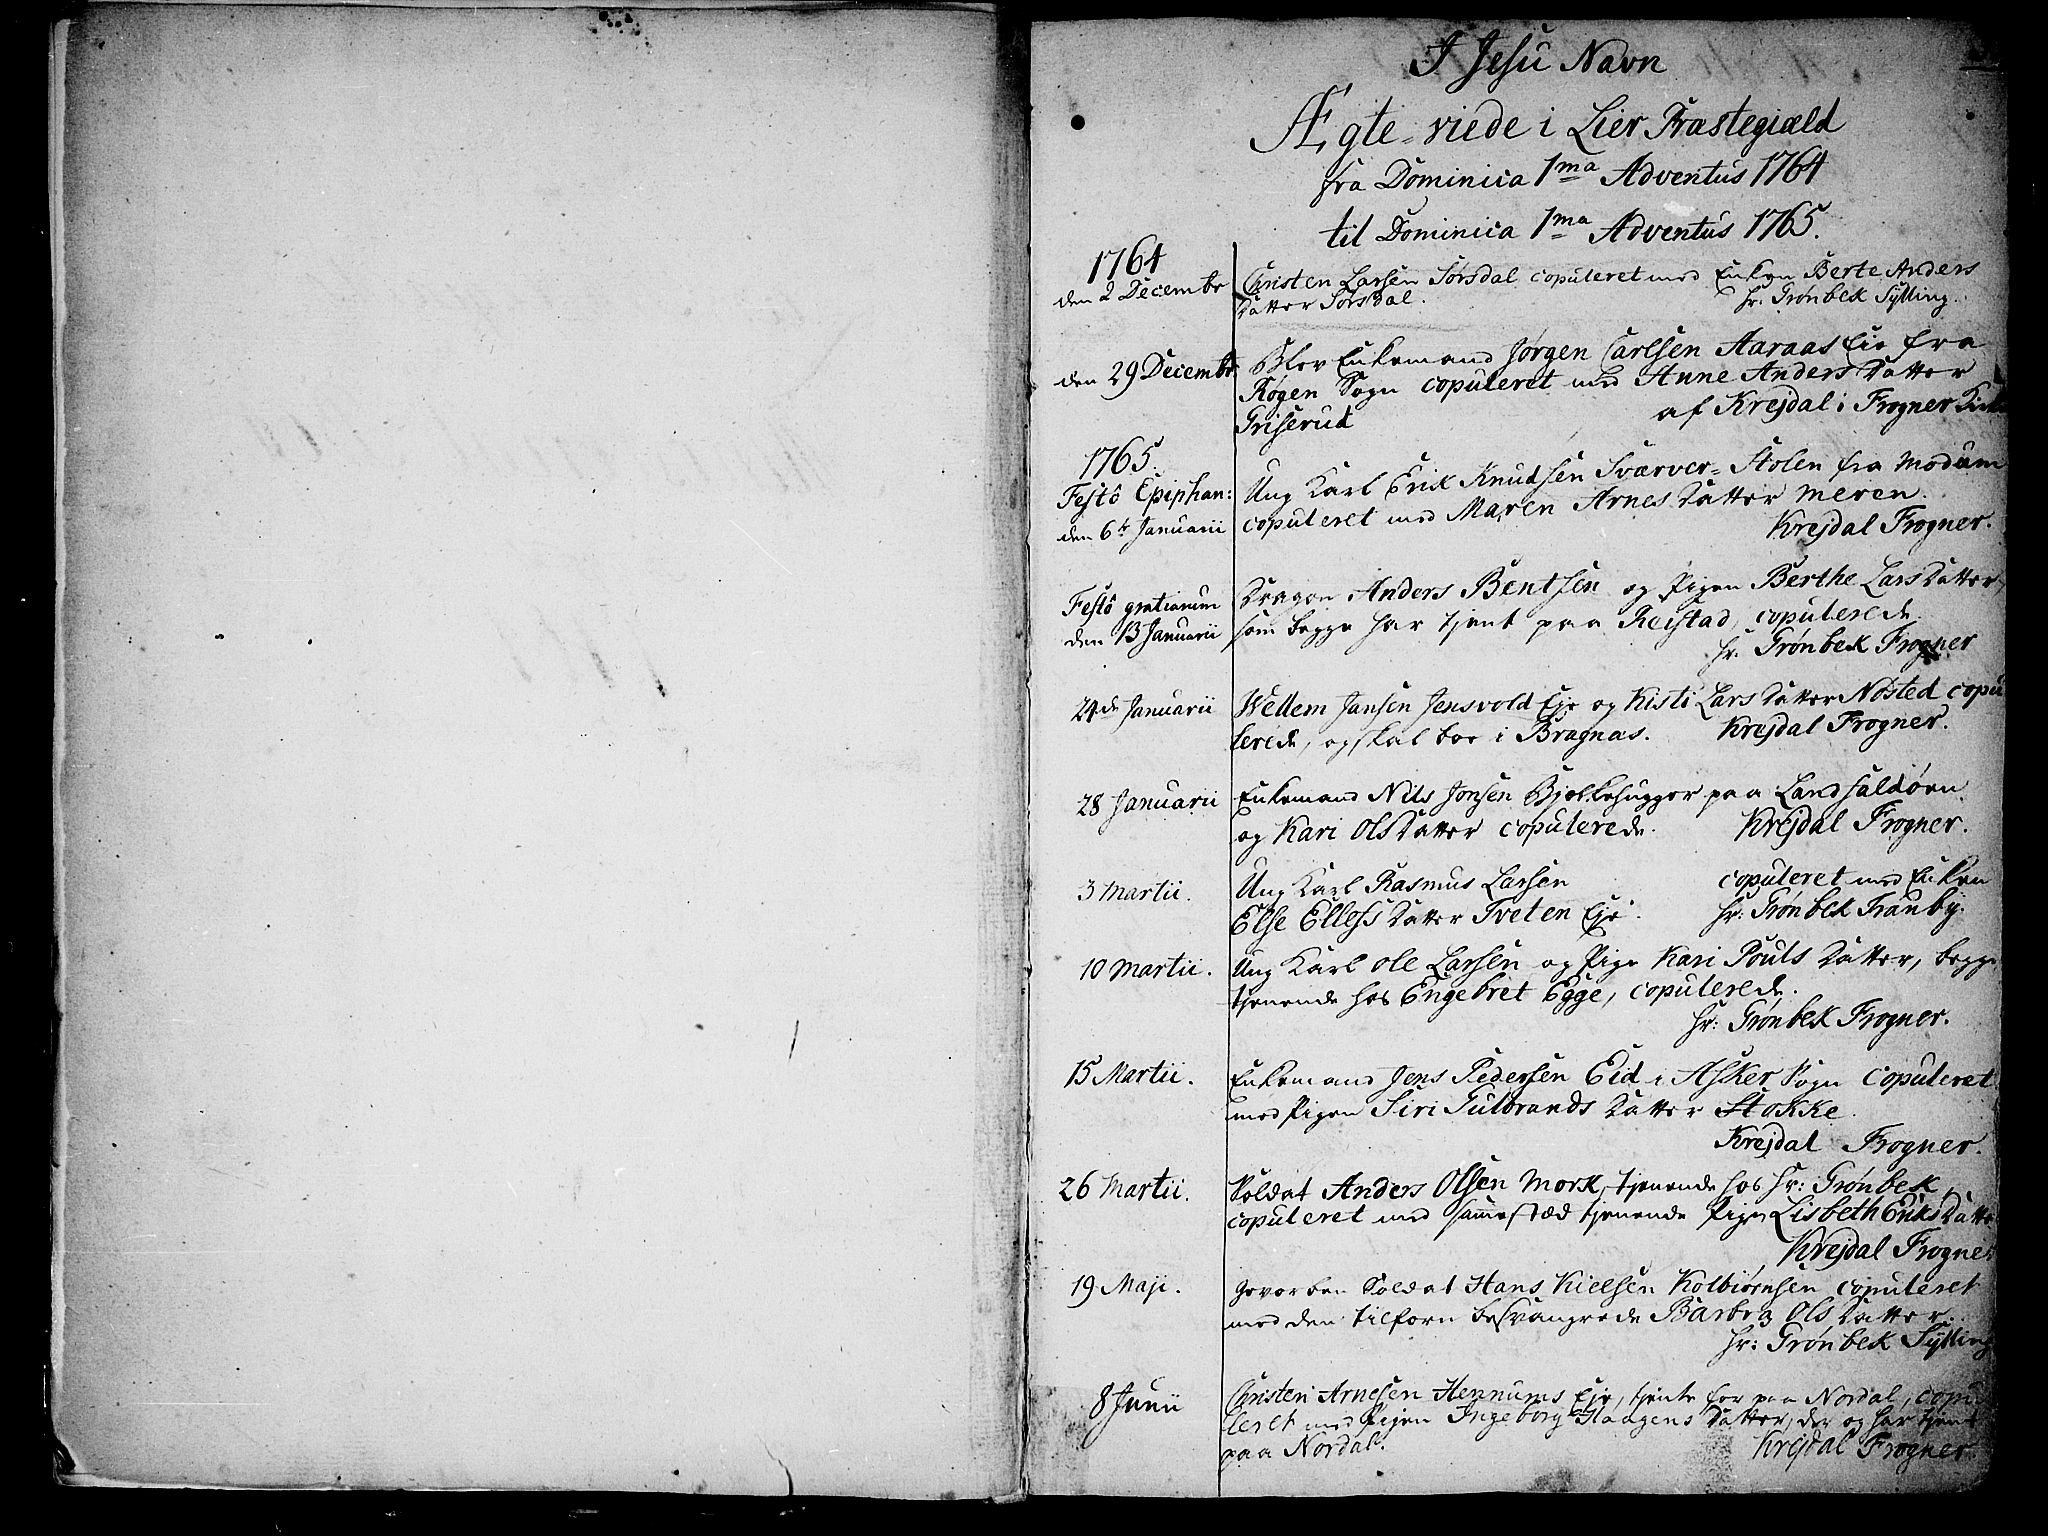 I Jesu Navn
Ægte-viede i Lier Præstegiæld
fra Dominica 1ma Adventus 1764
til Dominica 1ma Adventus 1765.
1764
den 2 Decembr Christen Larsen Sørsdal copuleret med Enken Berte Anders
Datter Sørsdal. Hr. Grønbek Sylling.
den 29 Decembr Blev Enkemand Jørgen Carlsen Aaraas Eie fra
Røgen Sogn copuleret med Anne Anders Datter
Griserud af Krejdal i Frogner
1765.
Festô Epiphan: Ung Karl Erik Knudsen Sværver-Stolen fra Modum
den 6te Januarii copuleret med Maren Arnes Datter Meren.
Krejdal Frogner.
Festô gratiarum Dragon Anders Bentsen og Pigen Berthe Lars Datter,
den 13 Januarii som begge har tjent paa Reistad, copulerede
Hr. Grønbek Frogner
24de Januarii Wellem Jansen Jensvold Eje og Kisti Lars Datter Nøsted copu
lerede, og skal boe i Bragnæs. Krejdal Frogner.
28 Januarii Enkemand Nils Jonsen Bjelkehugger paa Landfaldøen
og Kari Ols Datter copulerede. Krejdal Frogner.
3 Martii. Ung Karl Rasmus Larsen copuleret med Enken
Else Ellefs Datter Tveten Eje. Hr: Grønbek Tranby.
10 Martii. Ung Karl Ole Larsen og Pige Kari Pouls Datter, begge
tjenende hos Engebret Egge, copulerede.
Hr: Grønbek Frogner.
15 Martii. Enkemand Jens Pedersen Eid i Asker Sogn copuleret
med Pigen Siri Gulbrands Datter Stokke.
Krejdal Frogner.
26 Martii. Soldat Anders Olsen Mork, tjenende hos Hr: Grønbek,
copuleret med sammestæd tjenende Pige Lisbeth Eriks Datter
Krejdal Frogner.
19 Maji. Gevorben Soldat Hans Kielsen Kolbiørnsen copuleret
med den tilforn besvangrede Barbra Ols Datter.
Hr: Grønbek Sylling
8 Junii Christen Arnesen Hennums Eje, tjente før paa Nordal, copu
leret med Pigen Ingeborg Haagens Datter, der og har tjent
paa Nordal. Krejdal Frogner